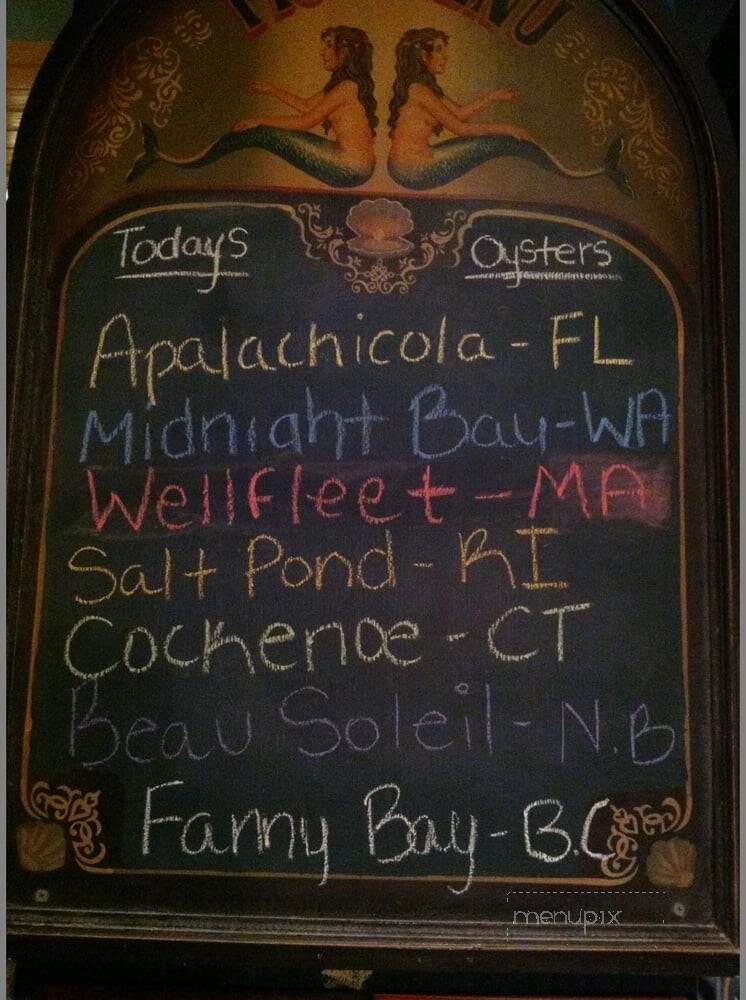 Todays Oysters
Apalachicola - FL
Midnight Bay - WA
Wellfleet - MA
Salt Pond - RI
Cockenoe - CT
Beau Soleil - N.B
Fanny Bay - B.C
menupix